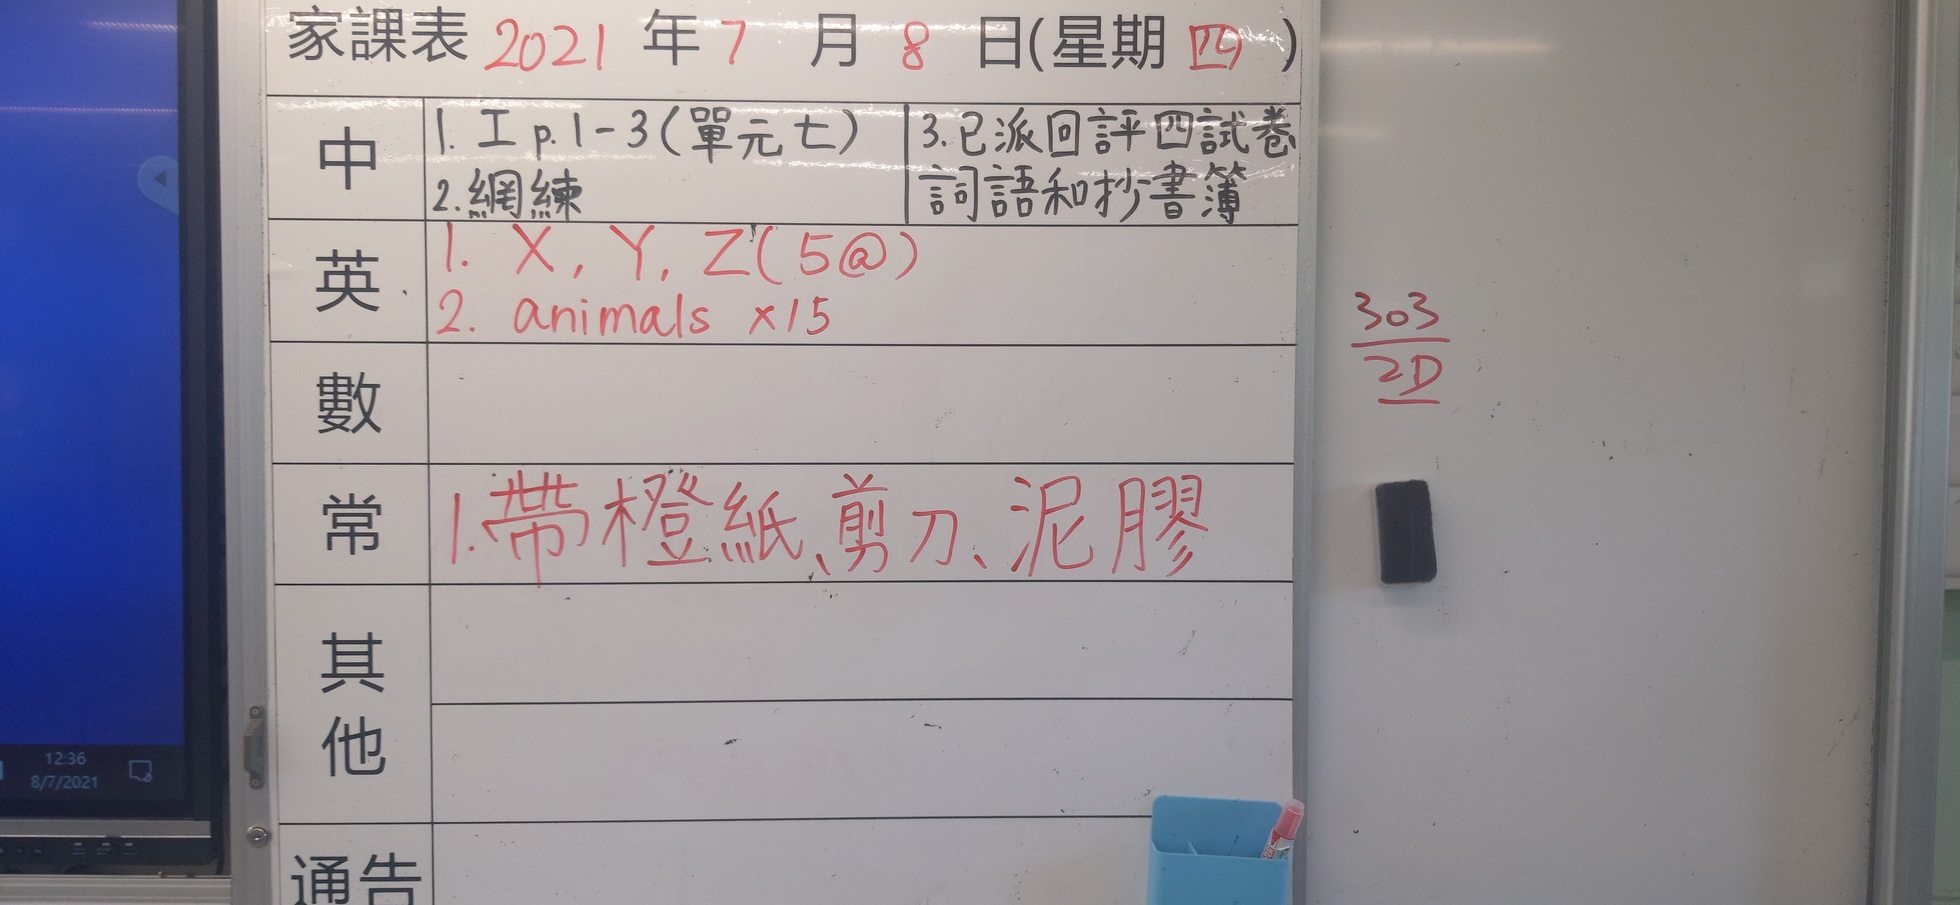 家課表 2021 年 7 月 8 日(星期 四 )
中
1. 工 p. 1-3 (單元七)
2. 網練
3. 已派回評四試卷
詞語和抄書簿
英
1. X, Y, Z (5@)
2. animals ×15
數
常
1. 帶橙紙、剪刀、泥膠
其他
通告
303
2D
12:36
8/7/2021